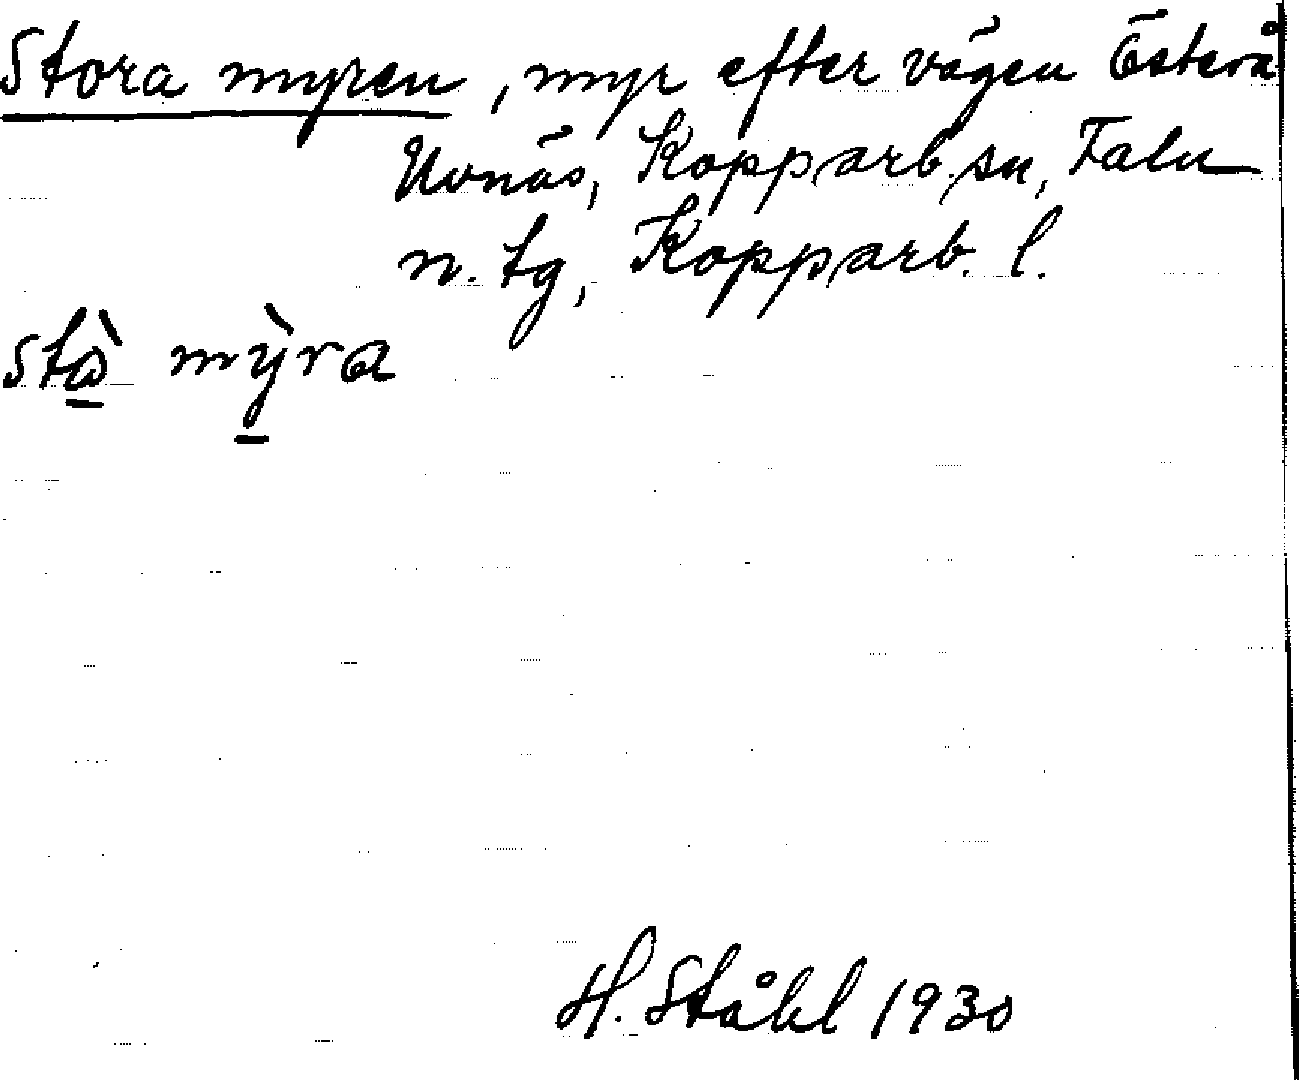 Stora myren, myr efter vägen Österå
Uvnäs, Kopparb. sn, Falu
n. tg, Kopparb. l.
stɷ̀ mỳra
H. Ståhl 1930